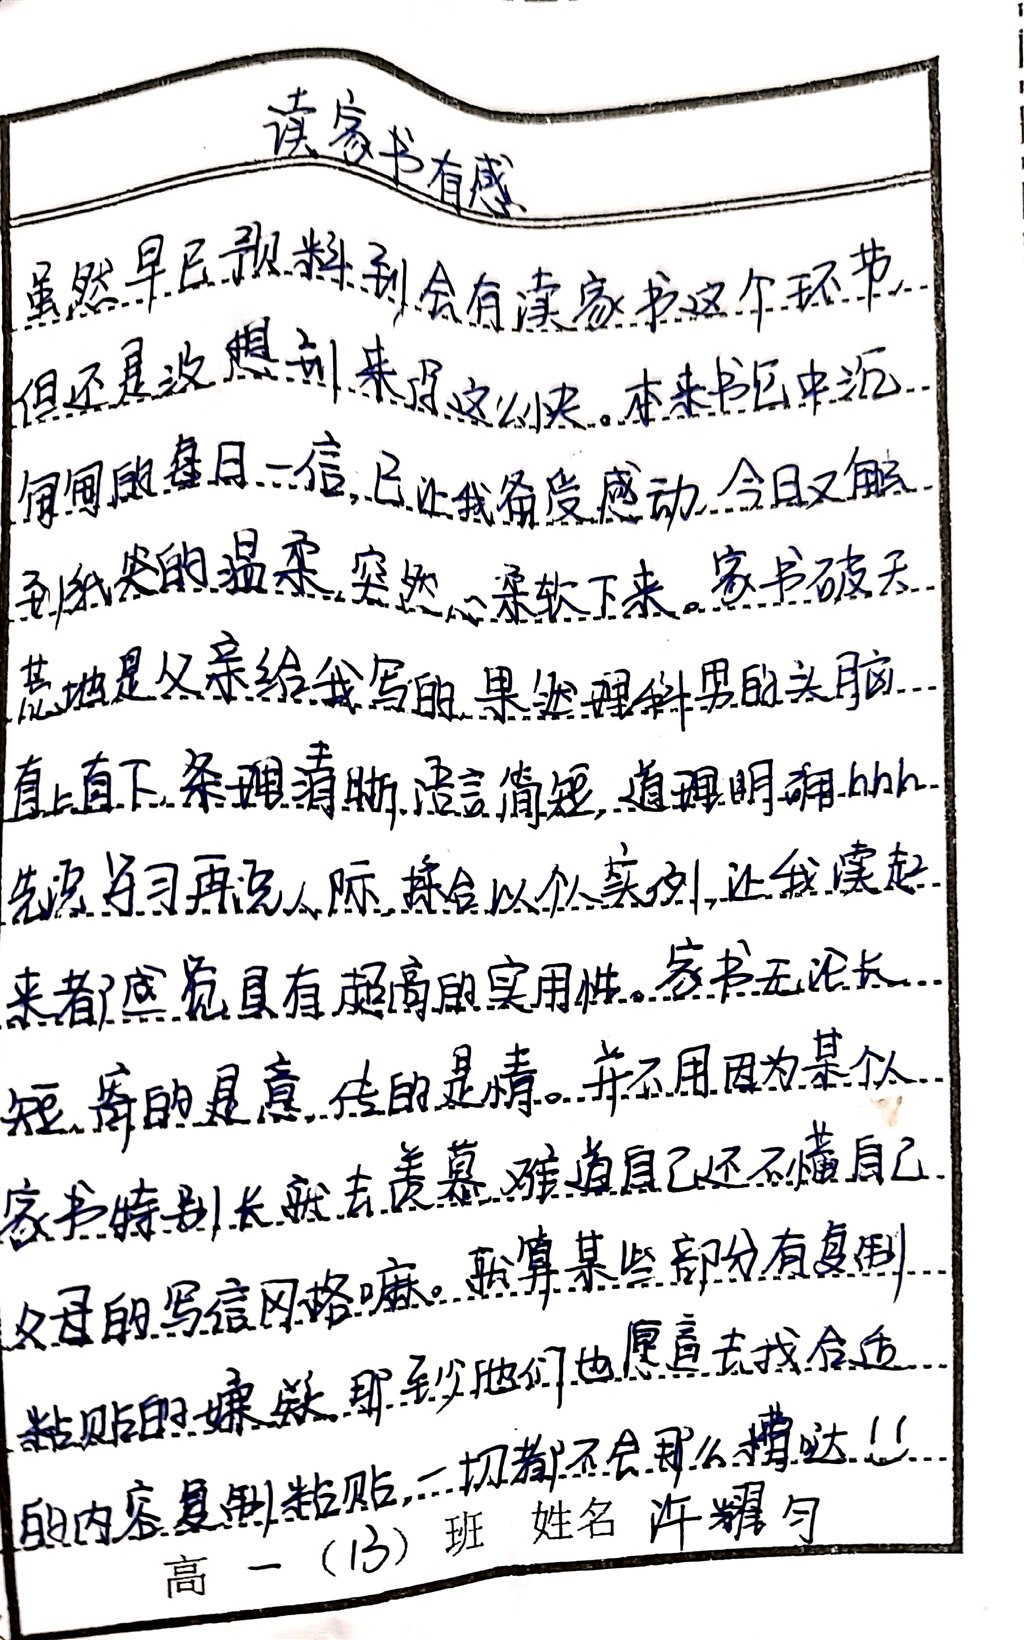 读家书有感
虽然早已预料到会有读家书这个环节,
但还是没想到来得这么快。本来书包中沉
甸甸的每日一信,已让我备受感动,今日又触
到我类的温柔,突然心柔软下来。家书破天
荒地是父亲给我写的,果然理科男的头脑
直上直下,条理清晰,语言简短,道理明确hhh
先说学习再说人际,揉合以个人实例,让我读起
来都感觉具有超高的实用性。家书无论长
短,寄的是意,传的是情。并不用因为某个人
家书特别长就去羡慕,难道自己还不懂自己
父母的写信风格嘛。就算某些部分有复制
粘贴的嫌疑,那至少他们也愿意去找合适
的内容复制粘贴,一切都不会那么糟哒!!
高一(13)班 姓名 许耀匀